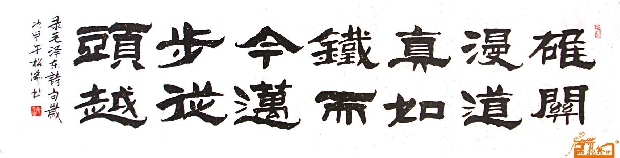 雄關
漫道
真如
鐵而
今邁
步從
頭越
录毛泽东詩句歲
次甲午松濤书